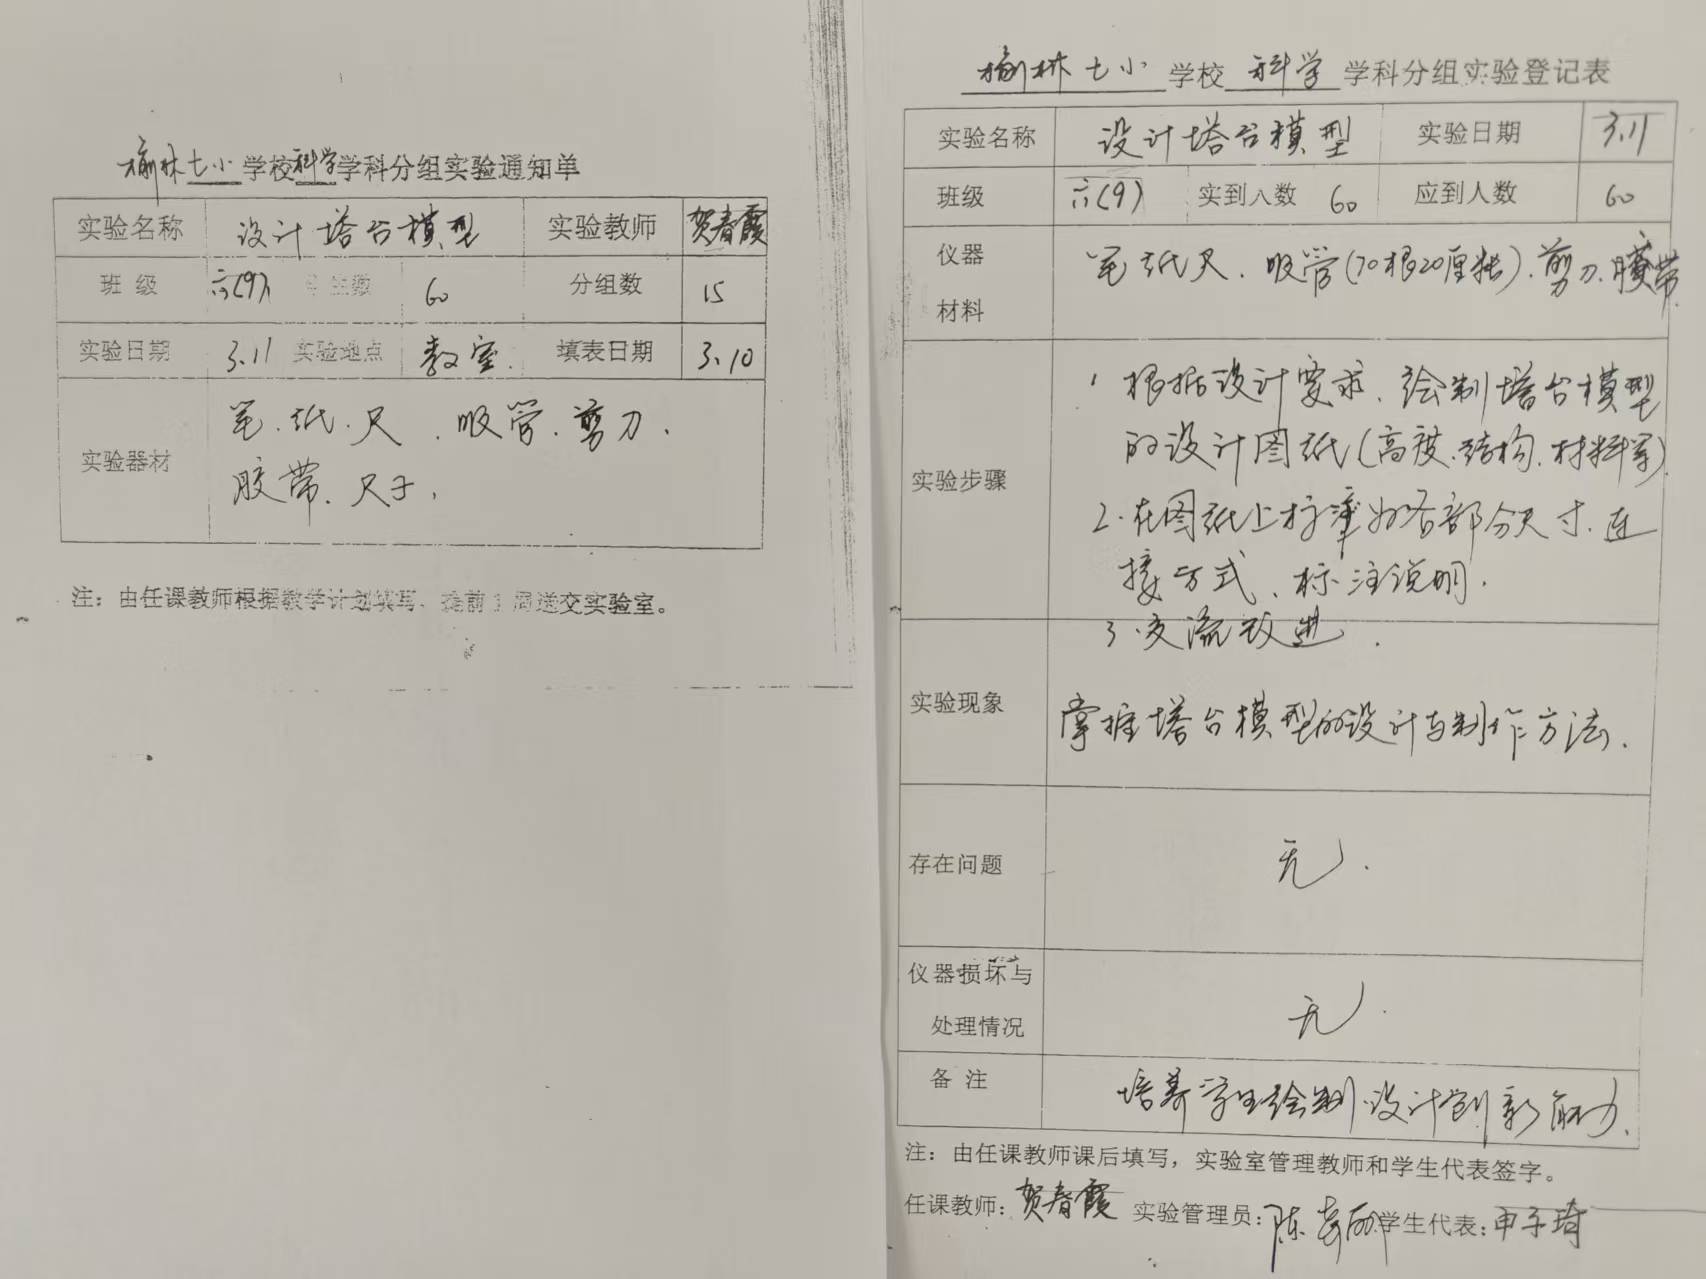 榆林七小学校科学学科分组实验通知单
实验名称 设计塔台模型 实验教师 贺春霞
班 级 六(9) 学生数 60 分组数 15
实验日期 3.11 实验地点 教室. 填表日期 3.10
实验器材 笔.纸.尺.吸管.剪刀.
胶带.尺子.
注：由任课教师根据教学计划填写，提前1周递交实验室。
榆林七小 学校 科学 学科分组实验登记表
实验名称 设计塔台模型 实验日期 3.11
班级 六(9) 实到人数 60 应到人数 60
仪器
材料
笔.纸.尺.吸管(70根20厘米).剪刀.胶带
实验步骤
1 根据设计要求.绘制塔台模型
的设计图纸(高度.结构.材料等)
2.在图纸上标准好各部分尺寸.连
接方式、标注说明.
3.交流改进.
实验现象 掌握塔台模型的设计与制作方法.
存在问题 无.
仪器损坏与
处理情况
无.
备 注 培养学生绘制.设计创新能力.
注：由任课教师课后填写，实验室管理教师和学生代表签字。
任课教师：贺春霞 实验管理员：陈 学生代表：申子琦